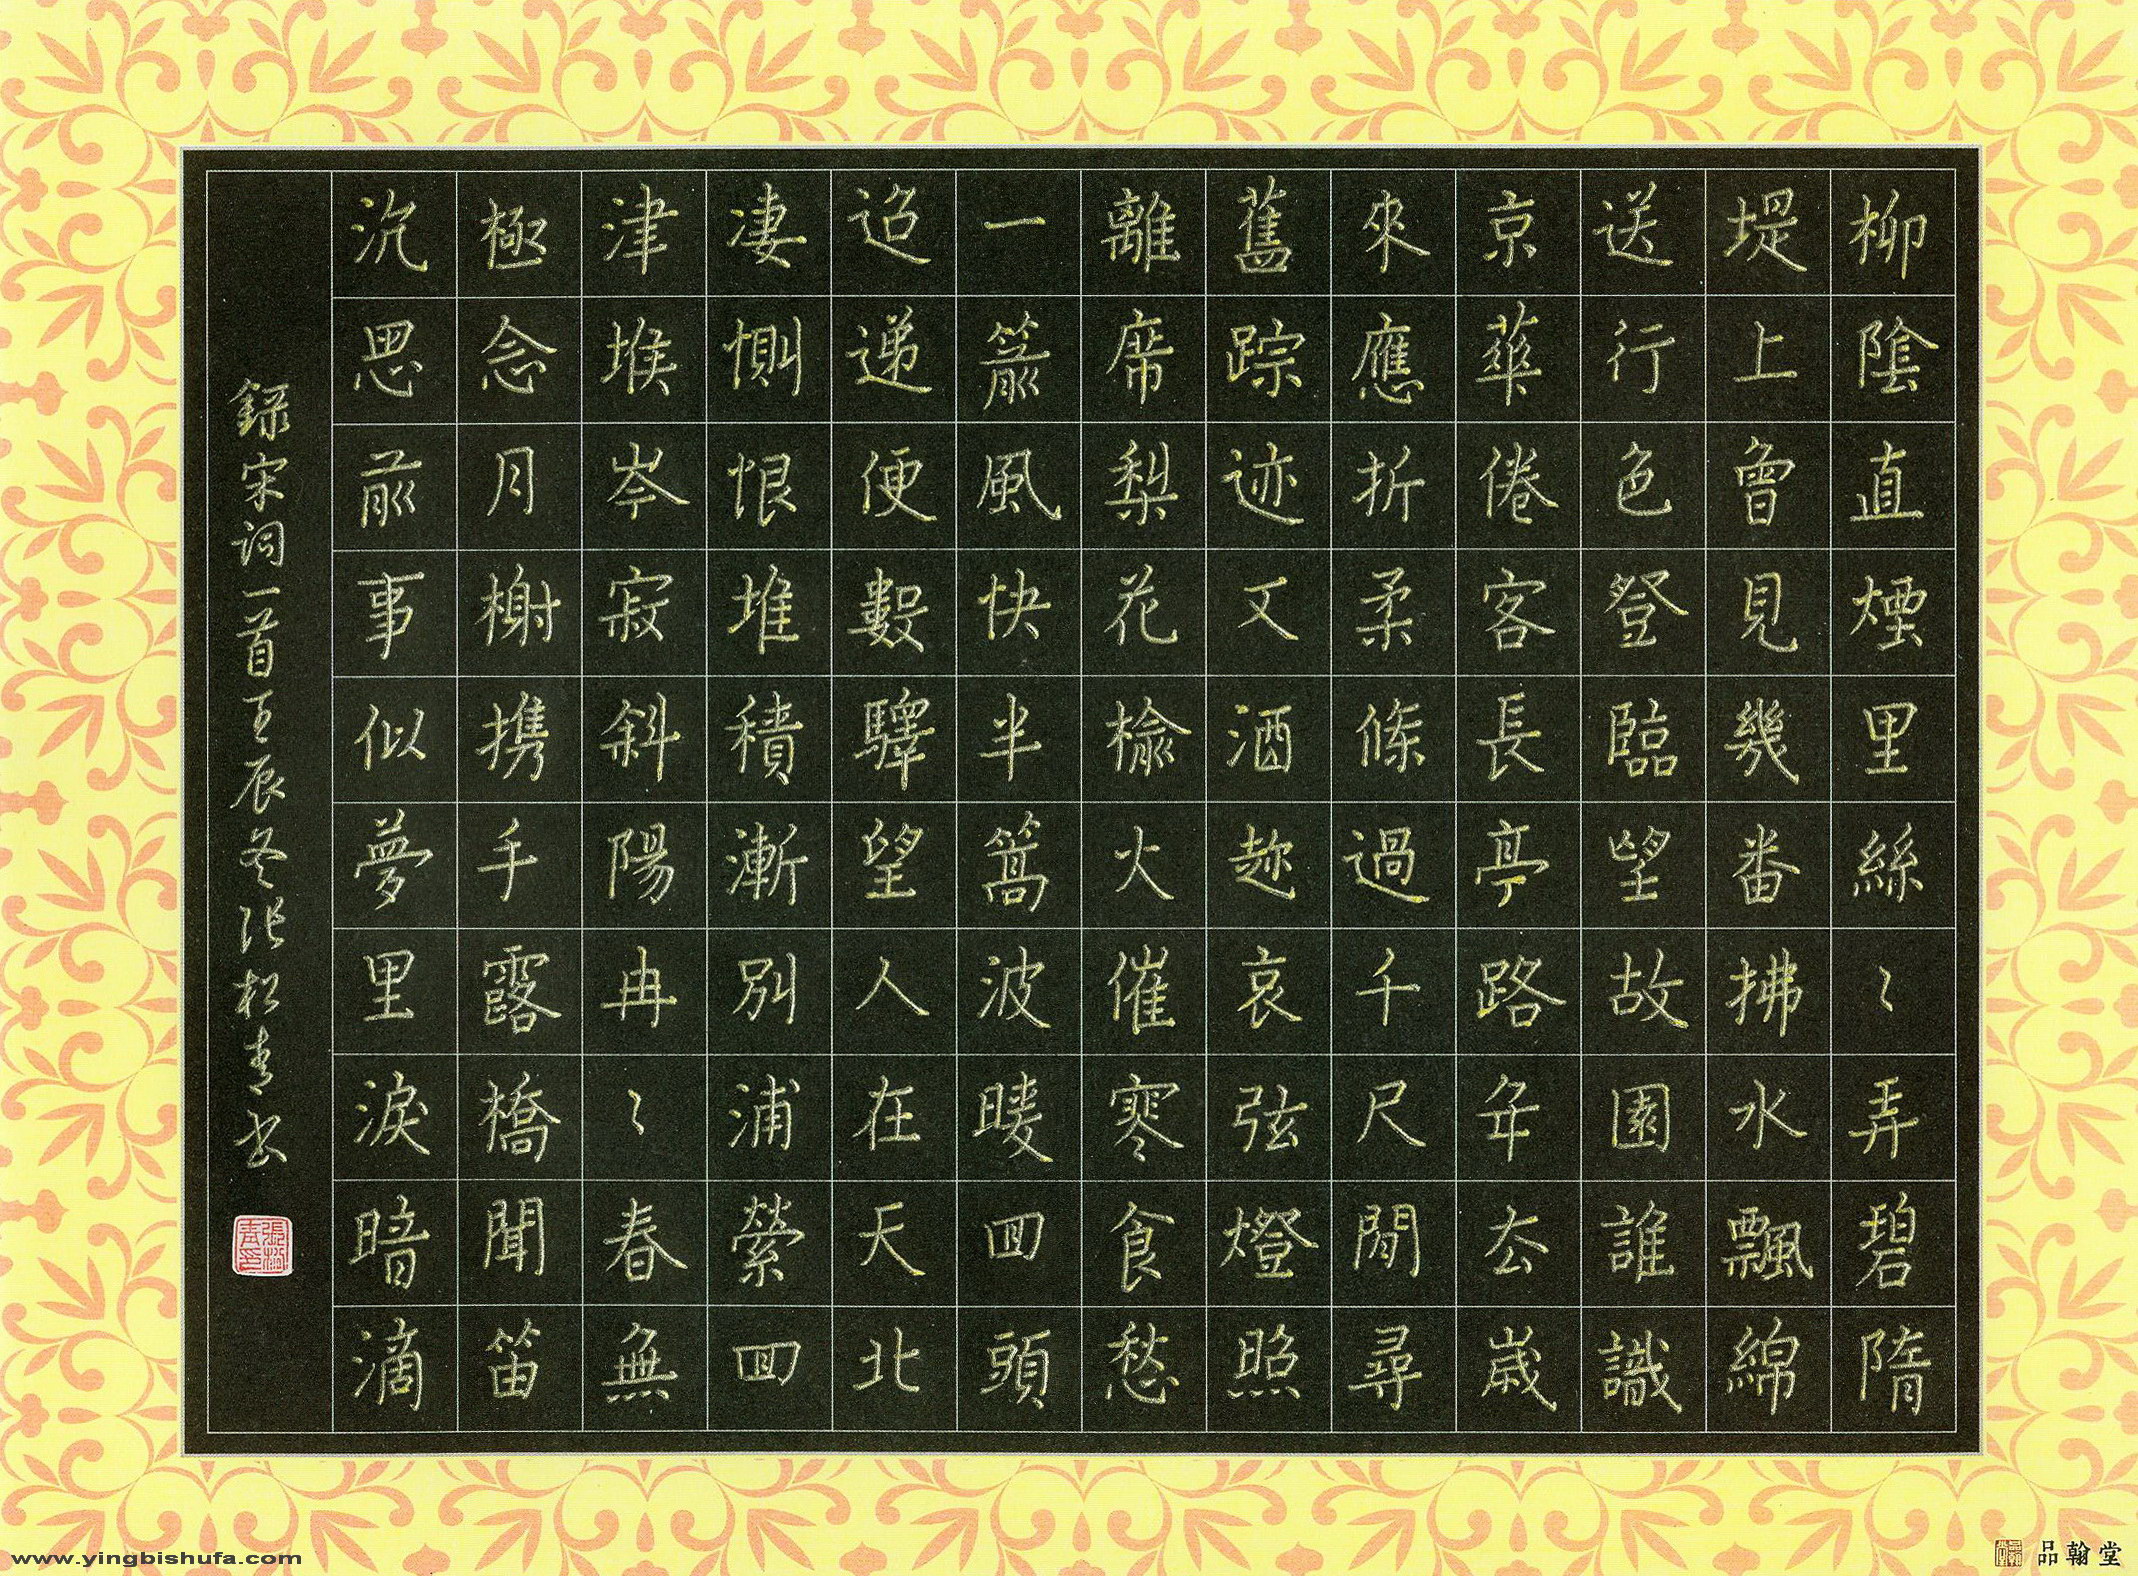 柳陰直煙里絲〻弄碧隋
堤上曾見幾番拂水飄綿
送行色登臨望故園誰識
京華倦客長亭路年去歲
來應折柔條過千尺閒尋
舊踪迹又酒趂哀弦燈照
離席梨花榆火催寒食愁
一箭風快半篙波暖回頭
迢递便數驛望人在天北
凄惻恨堆積漸別浦縈回
津堠岑寂斜陽冉〻春無
極念月榭携手露橋聞笛
沉思前事似夢里淚暗滴
録宋詞一首壬辰冬張松青书
品翰堂
www.yingbishufa.com